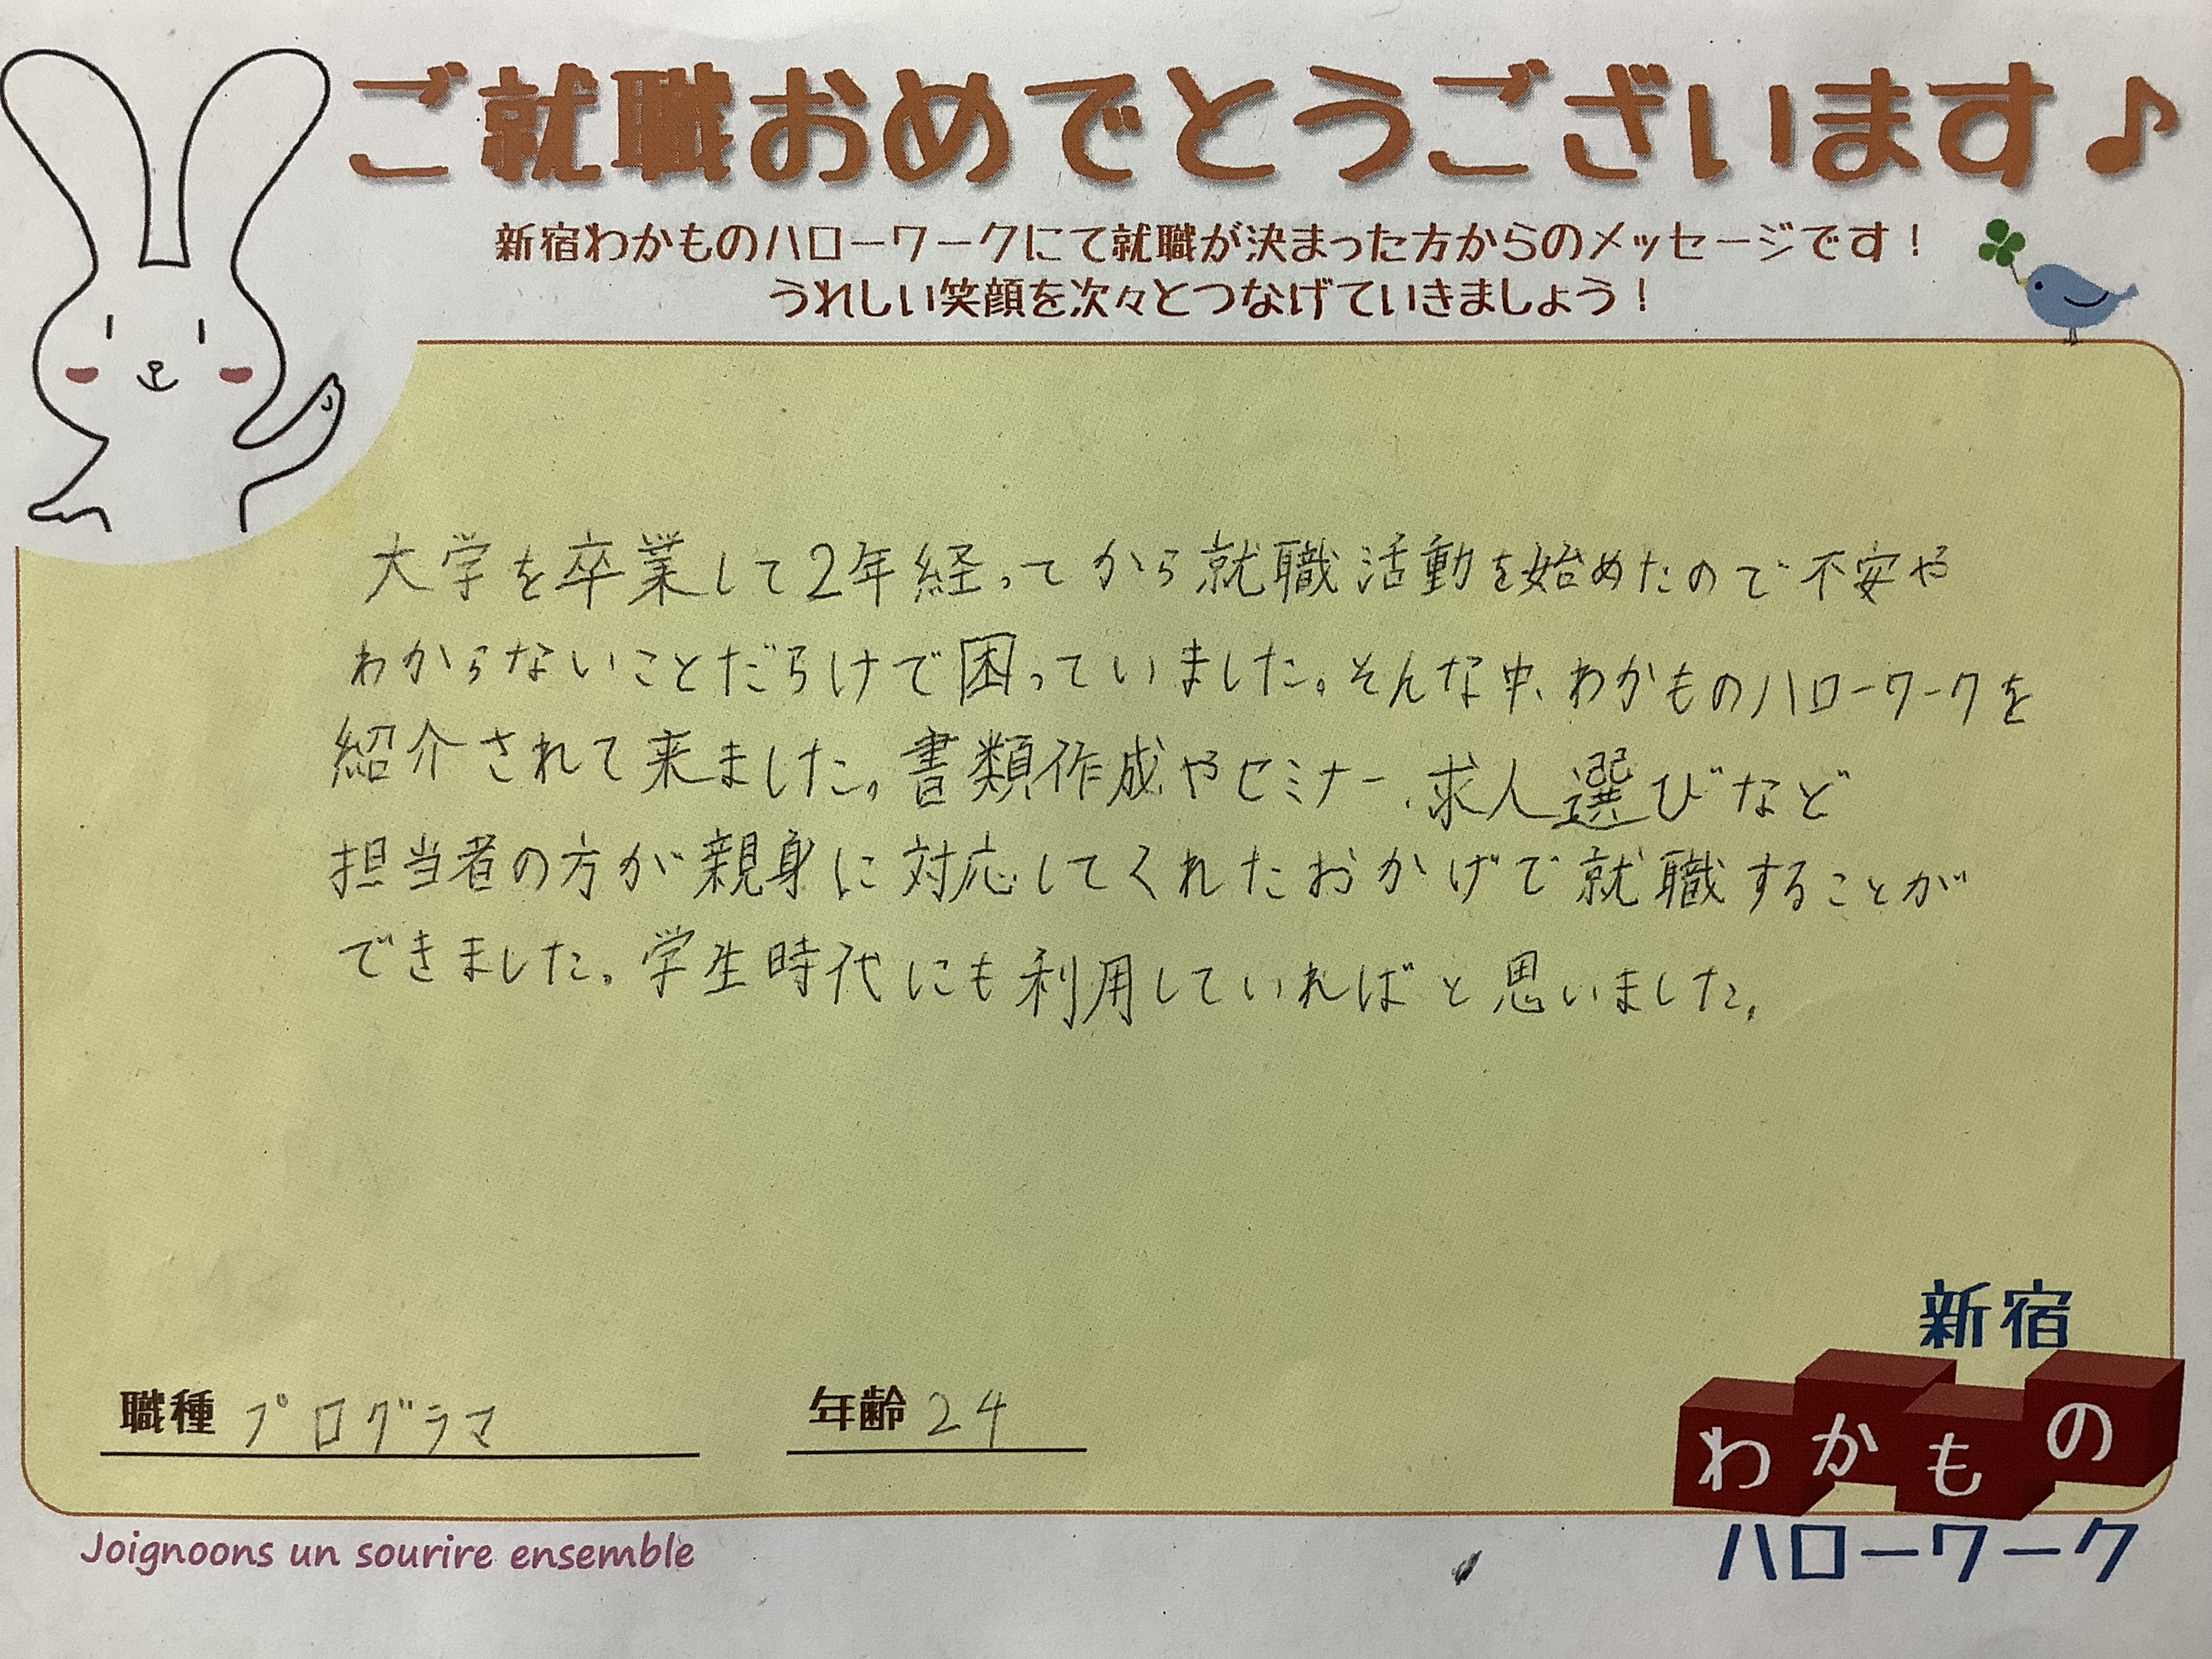 ご就職おめでとうございます♪
新宿わかものハローワークにて就職が決まった方からのメッセージです！
うれしい笑顔を次々とつなげていきましょう！
大学を卒業して2年経ってから就職活動を始めたので不安や
わからないことだらけで困っていました。そんな中、わかものハローワークを
紹介されて来ました。書類作成やセミナー、求人選びなど
担当者の方が親身に対応してくれたおかげで就職することが
できました。学生時代にも利用していればと思いました。
職種 プログラマ 年齢 24
新宿
わかもの
ハローワーク
Joignoons un sourire ensemble